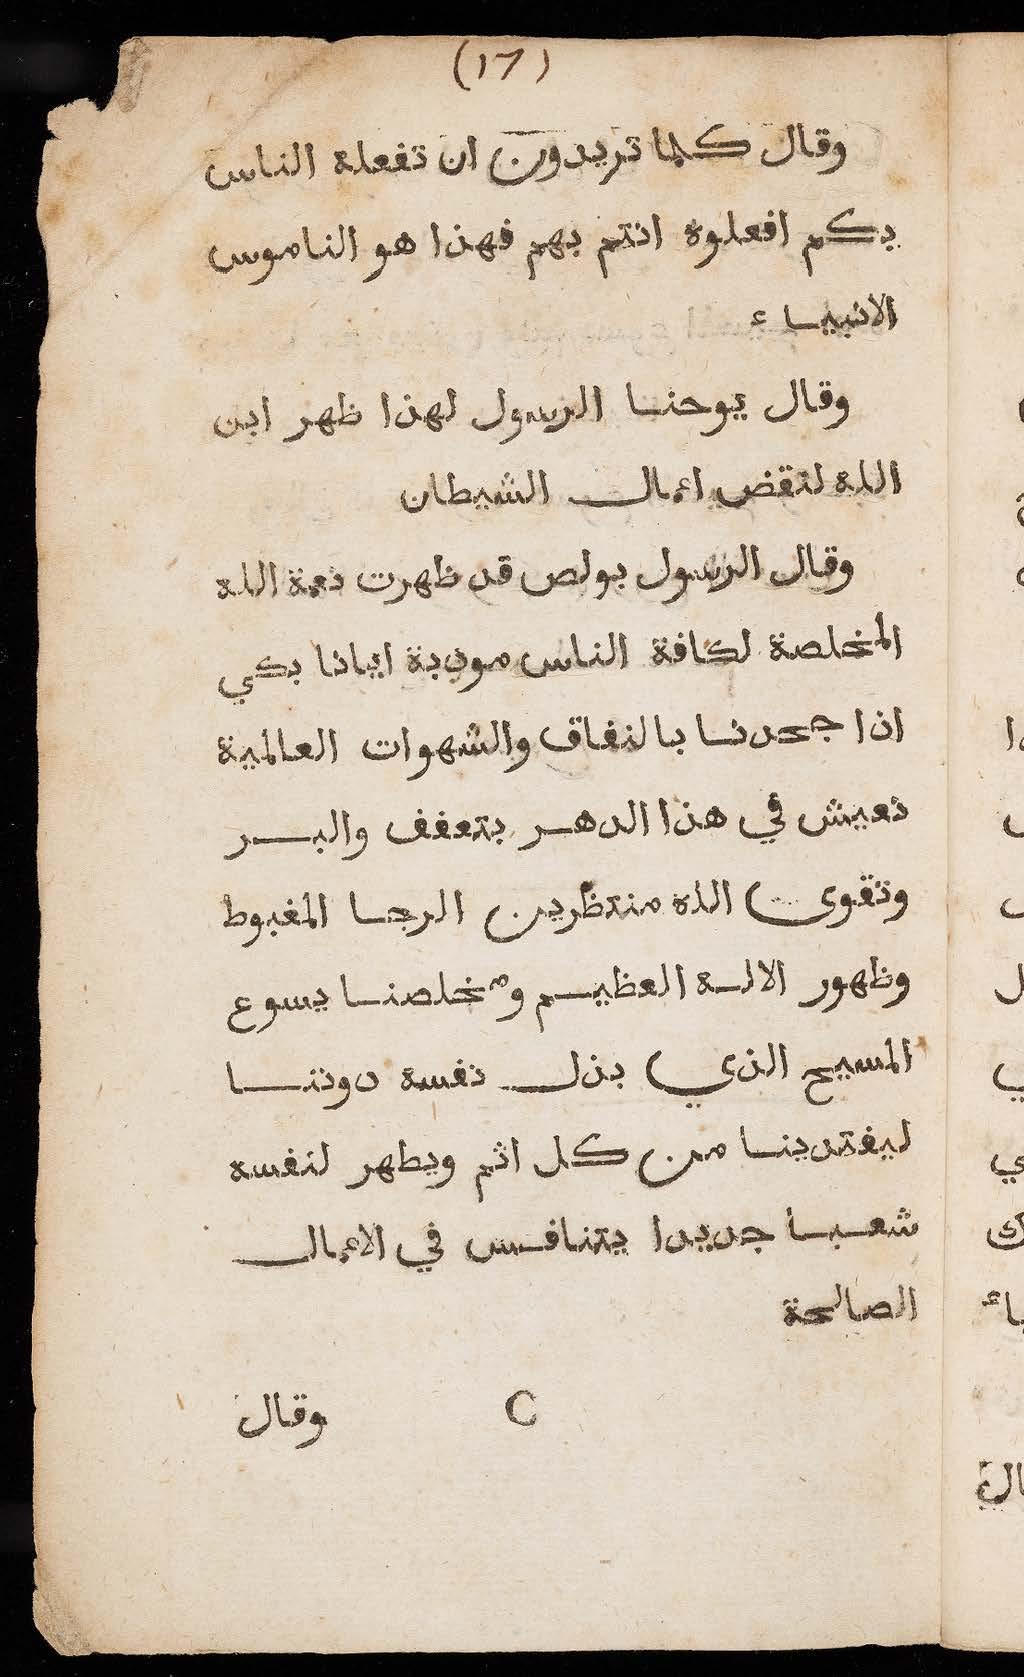 (17)
وقال كلما تريدون ان تفعله الناس
بكم افعلوه انتم بهم فهذا هو الناموس
الانبياء
وقال يوحنا الرسول لهذا ظهر ابن
الله لنقض اعمال الشيطان
وقال الرسول بولص قد ظهرت نعمة الله
المخلصة لكافة الناس مودبة ايانا بكي
اذا جحدنا بالنفاق والشهوات العالمية
نعيش في هذا الدهر بتعفف والبر
وتقوى الله منتظرين الرجا المغبوط
وظهور الاله العظيم ومخلصنا يسوع
المسيح الذي بذل نفسه دوننا
ليفتدينا من كل اثم ويطهر لنفسه
شعبا جديدا يتنافس في الاعمال
الصالحة
C وقال